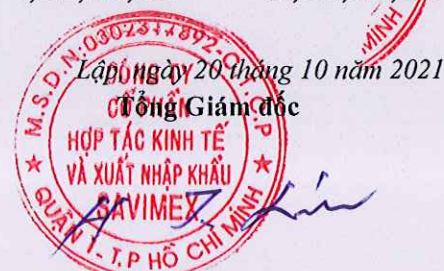 Lập, ngày 20 tháng 10 năm 2021
Tổng Giám đốc
M.S.D.N:0302317892-C.T.C.P
CÔNG TY
CỔ PHẦN
HỢP TÁC KINH TẾ
VÀ XUẤT NHẬP KHẨU
SAVIMEX
QUẬN 1 - T.P HỒ CHÍ MINH
MINH